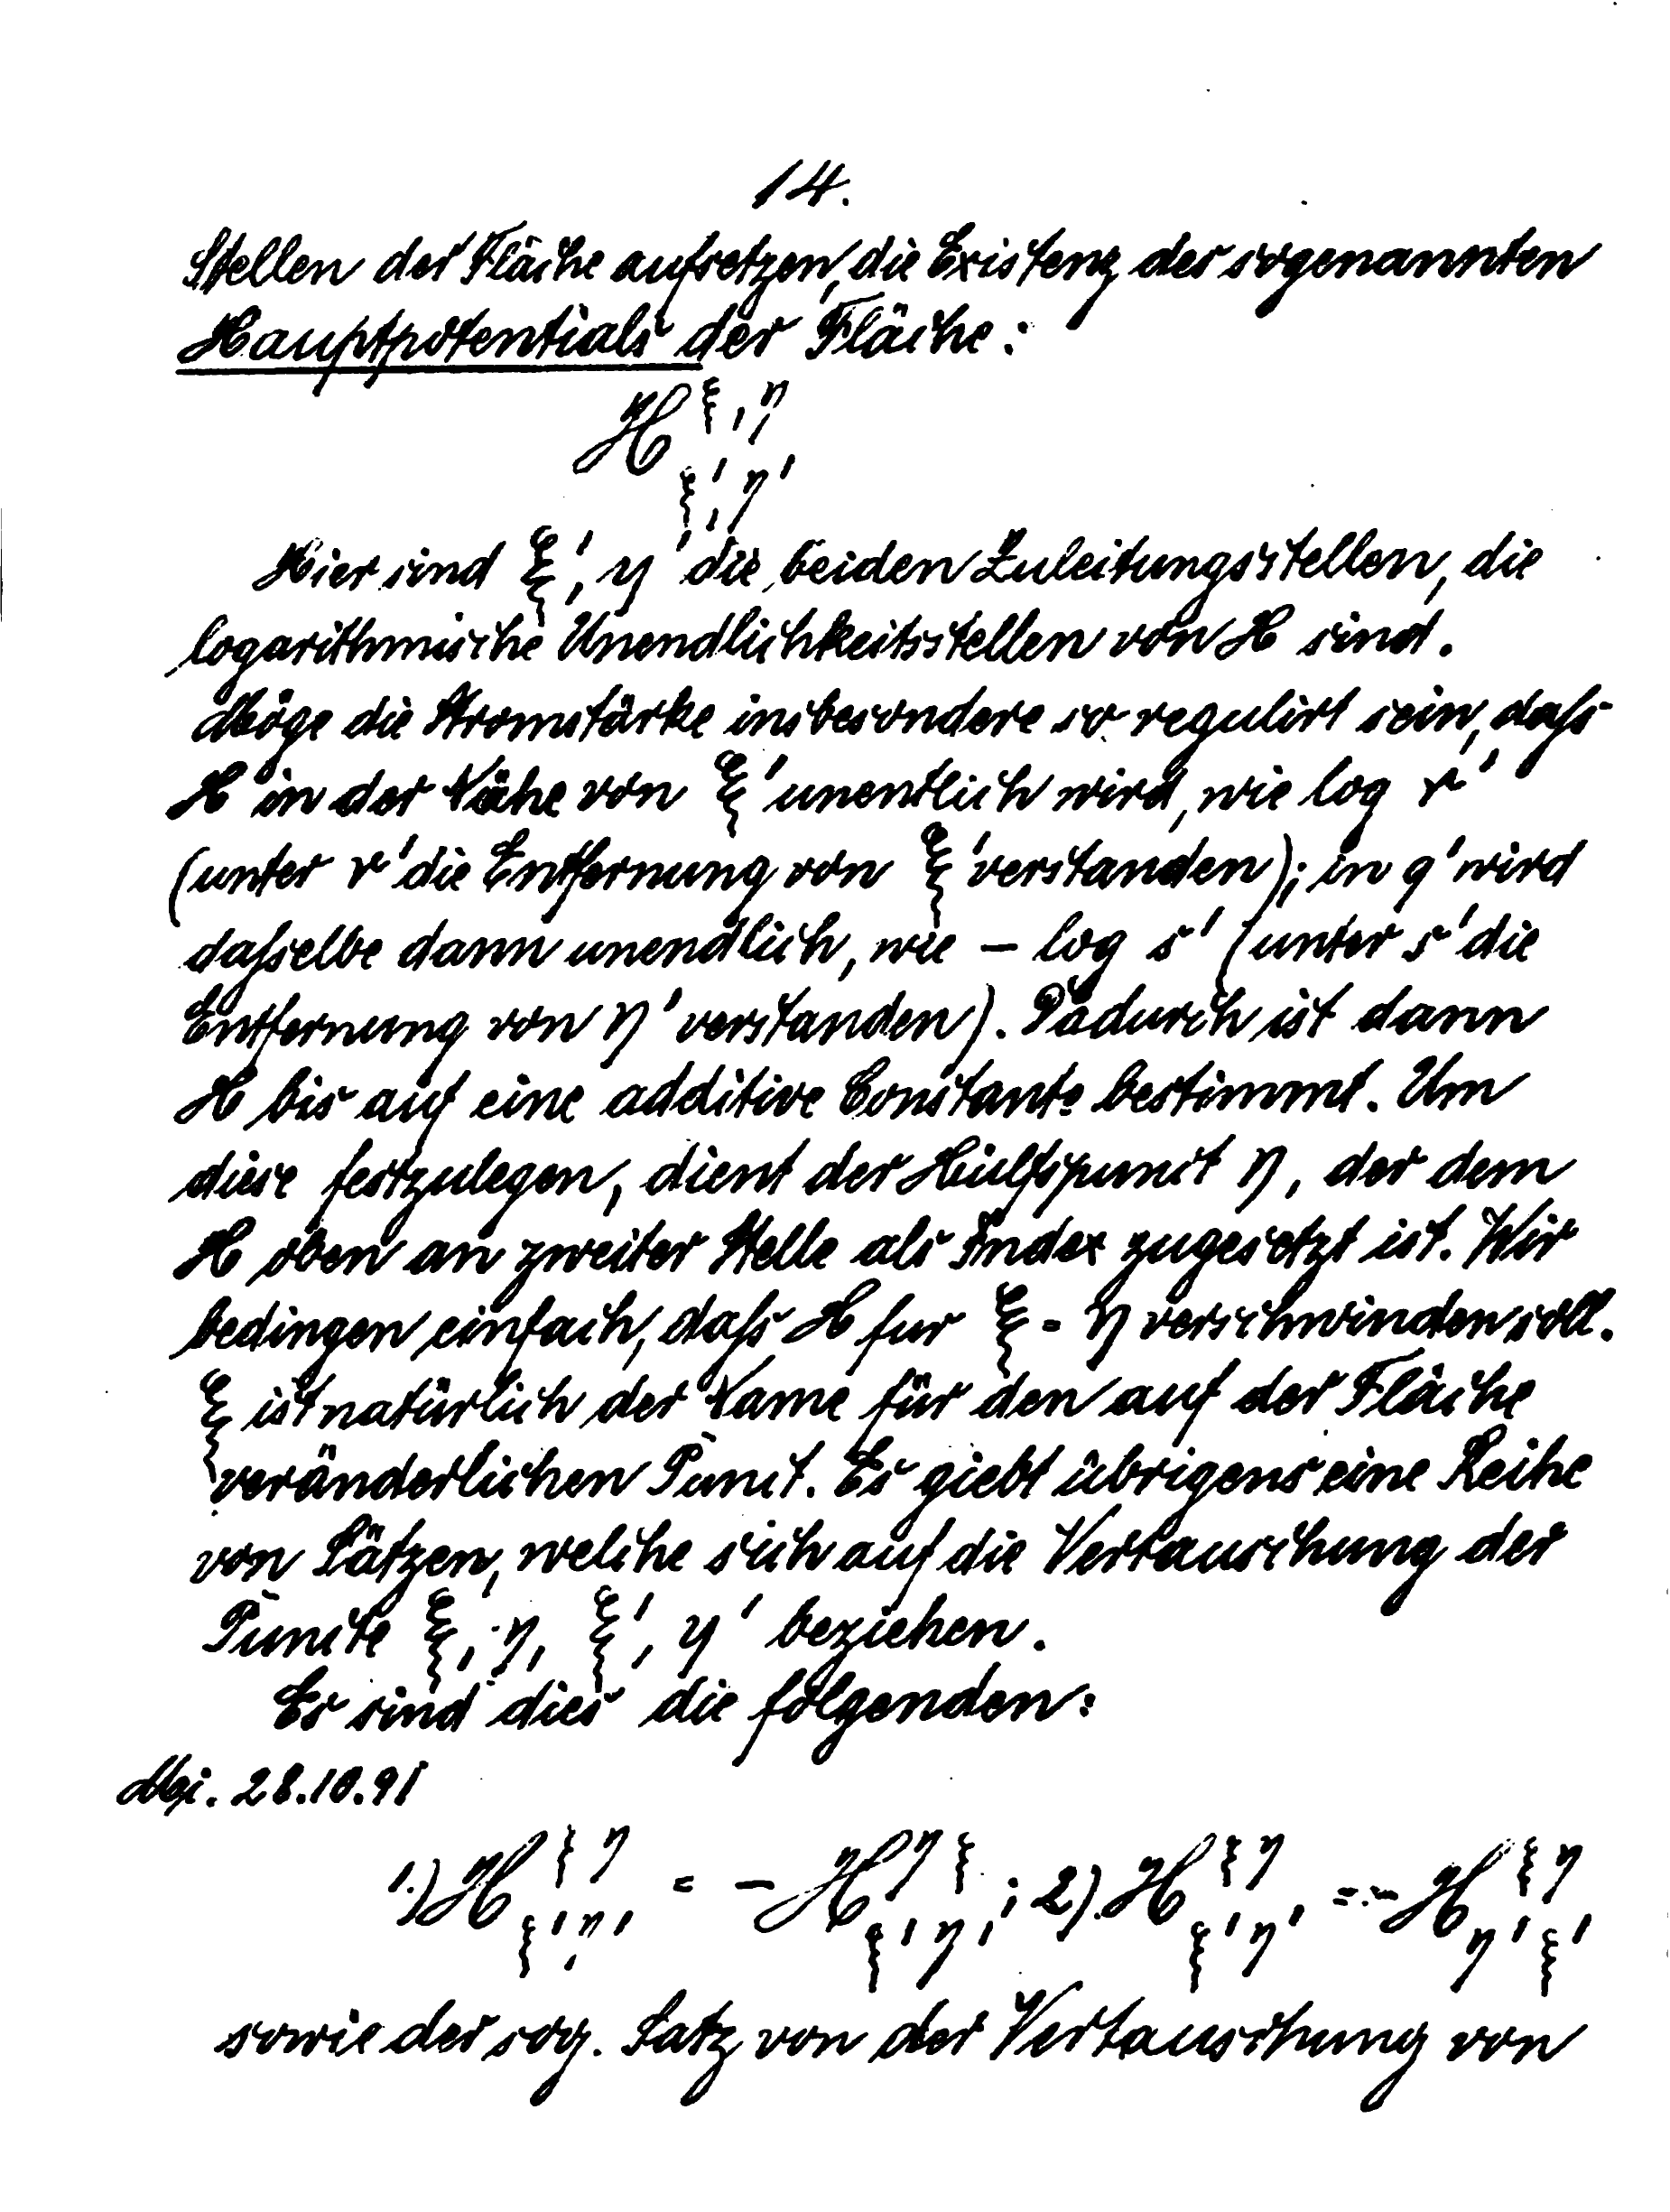 14.
Stellen der Fläche aufsetzen, die Existenz des sogenannten
Hauptpotentials der Fläche:
H^{ξ, η}_{ξ', η'}
Hier sind ξ', η' die beiden Zuleitungsstellen, die
logarithmische Unendlichkeitsstellen von H sind.
Möge die Stromstärke insbesondere so regulirt sein, daſs
H in der Nähe von ξ' unentlich wird, wie log r'
(unter r' die Entfernung von ξ' verstanden); in η' wird
daſselbe dann unendlich, wie – log s' (unter s' die
Entfernung von η' verstanden). Dadurch ist dann
H bis auf eine additive Constante bestimmt. Um
diese festzulegen, dient der Hülfspunct η, der dem
H oben an zweiter Stelle als Index zugesetzt ist. Wir
bedingen einfach, daſs H fur ξ = η verschwinden soll.
ξ ist natürlich der Name für den auf der Fläche
veränderlichen Punct. Es giebt übrigens eine Reihe
von Sätzen, welche sich auf die Vertauschung der
Puncte ξ, η, ξ', η' beziehen.
Es sind dies die folgenden:
28.10.91
1.) H^{ξ η}_{ξ', η'} = – H^{η ξ}_{ξ' η'}; 2). H^{ξ η}_{ξ' η'} = – H^{ξ η}_{η' ξ'}
sowie der sog. Satz von der Vertauschung von